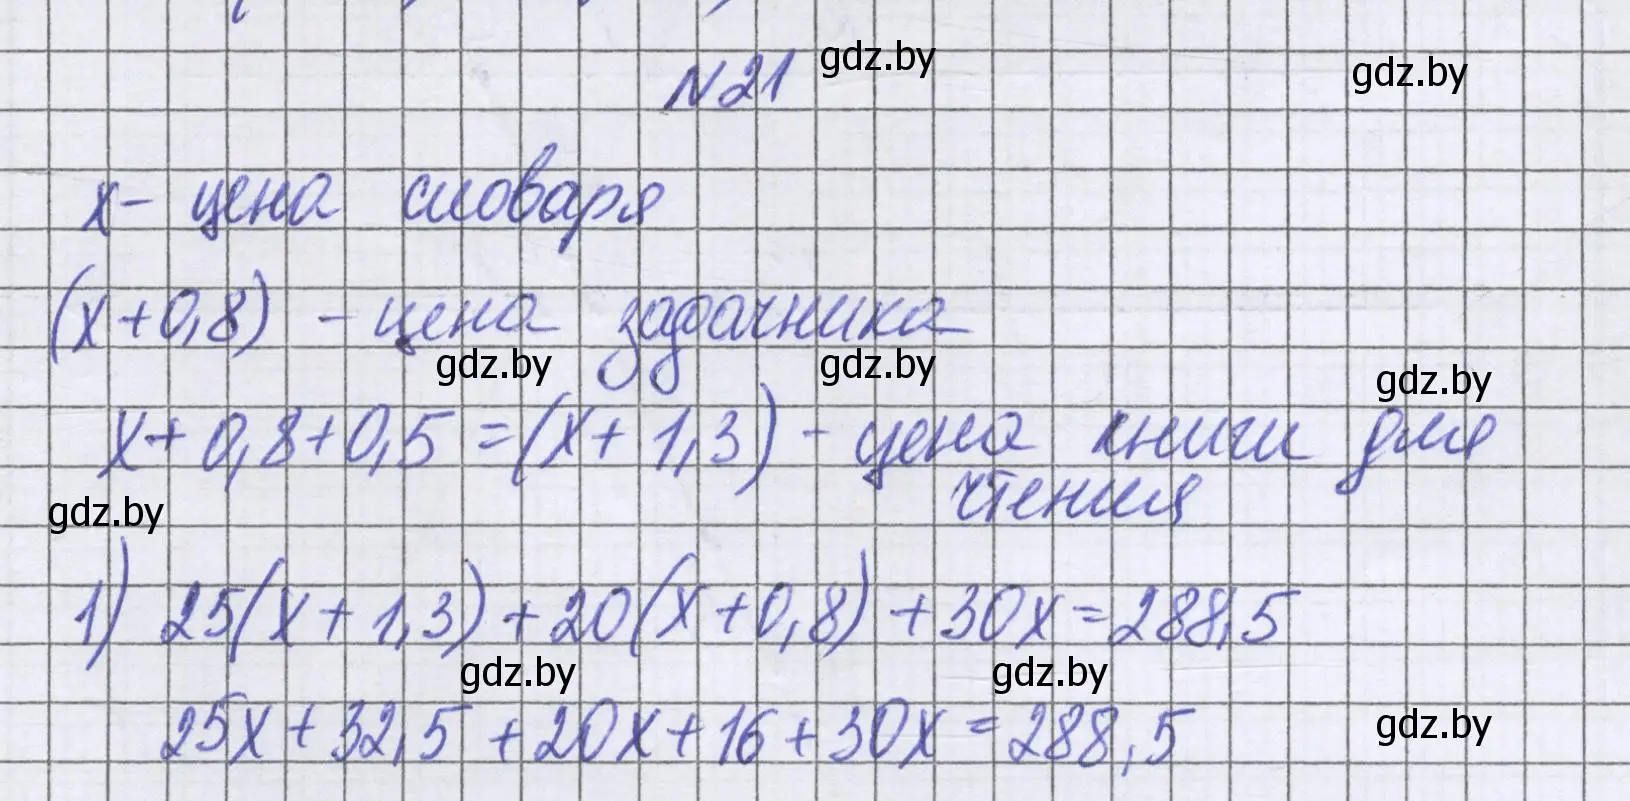 N21 gdz.by gdz.by
x - цена словаря
(x+0,8) - цена задачника
gdz.by gdz.by gdz.by
x+0,8+0,5=(x+1,3) - цена книги для
чтения
gdz.by
1) 25(x+1,3)+20(x+0,8)+30x=288,5
gdz.by gdz.by
25x+32,5+20x+16+30x=288,5
gdz.by